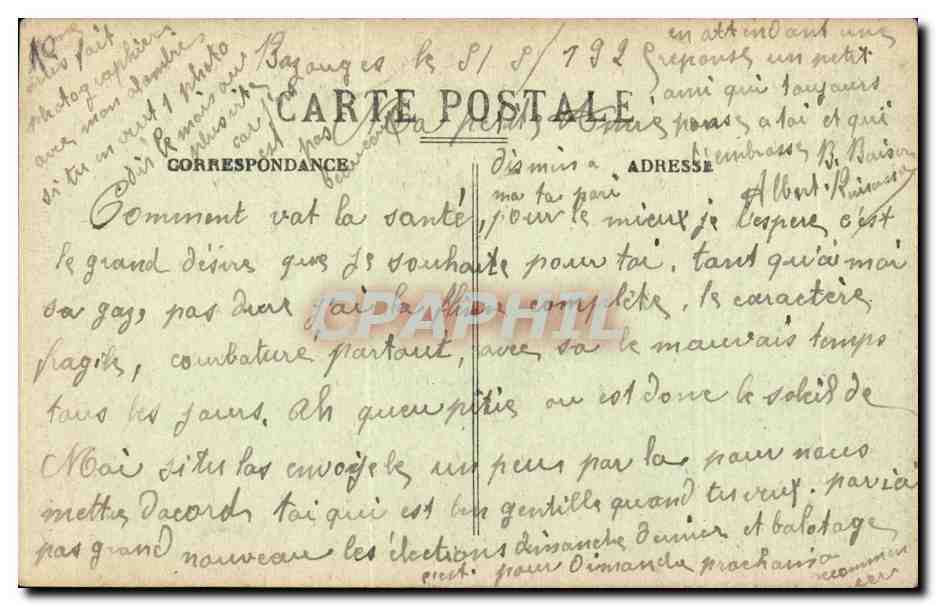 Bazouges le 5/5/192
CARTE POSTALE
CORRESPONDANCE
ADRESSE
Ma petite Amie
Comment vat la santé, pour le mieux je l'espere c'est
le grand désire que je souhaite pour toi. tant qu'ai moi
sa gaze pas dure j'ai la flume complète, le caractère
fragile, courbature partout, avec sa le mauvais temps
tous les jours. Ah queu pitié ou est donc le soleil de
Mai si tu las envoye le un peu par la pour nous
mettre dacord toi qui est bien gentille quand tu veux. par ici
pas grand nouveau les élections dimanche dernier et balotage
pour Dimanche prochain a recommencer
en attendant une
reponse un petit
ami qui toujours
pense a toi et qui
t'embrasse B. Baiser
Albert
suis fait
photographier
avec mon
si tu en veut 1 photo
dit le mois au
plus vite
car j'en
est pas
beaucoup
CPAPHIL